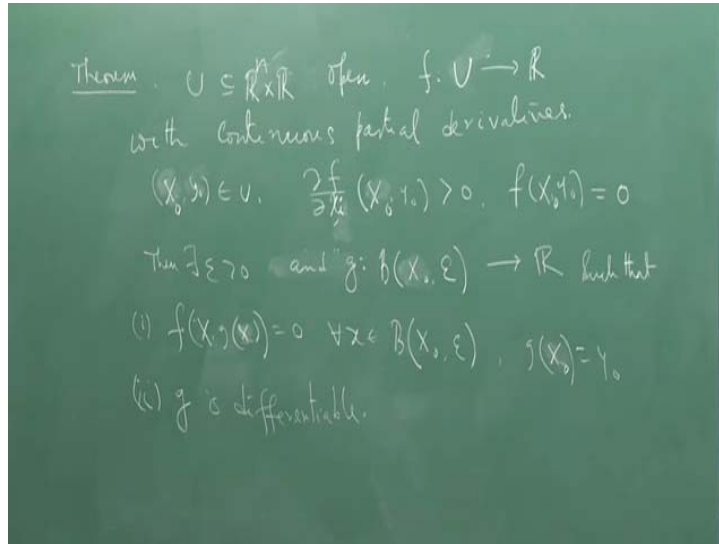 Theorem. U ⊆ ℝⁿ×ℝ open. f: U → ℝ
with continuous partial derivatives.
(X₀, y₀) ∈ U, ∂f/∂ (X₀, y₀) > 0, f(X₀, y₀) = 0
Then ∃ ε > 0 and g: B(X₀, ε) → ℝ such that
(i) f(X, g(X)) = 0 ∀ x ∈ B(X₀, ε), g(X₀) = y₀
(ii) g is differentiable.